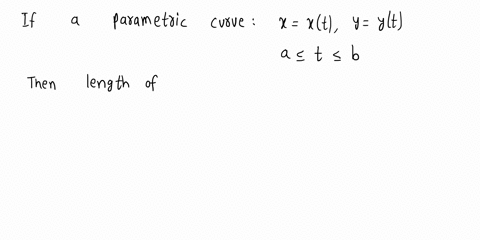 If a parametric curve: x = x(t), y = y(t)
a ≤ t ≤ b
Then length of